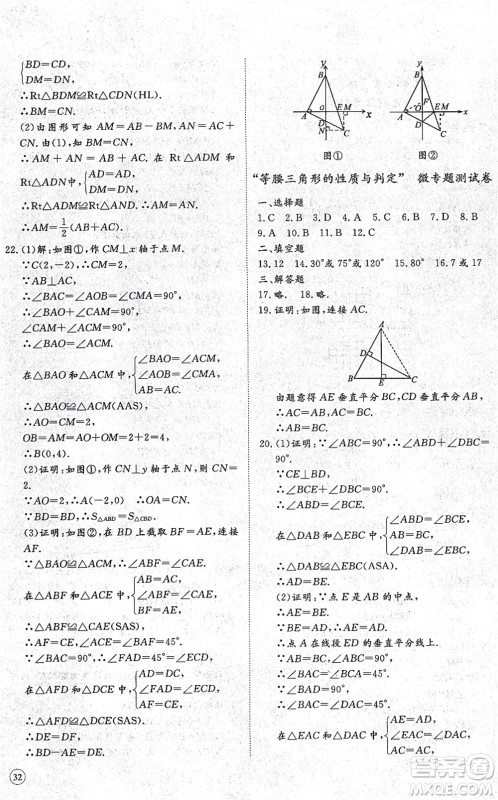 BD=CD,
DM=DN,
∴Rt△BDM≌Rt△CDN(HL).
∴BM=CN.
(2)由图形可知 AM=AB-BM,AN=AC+CN.
∴AM+AN=AB+AC. 在 Rt △ADM 与
Rt△ADN 中,
AD=AD,
DM=DN,
∴Rt△ADM≌Rt△ADN(HL).∴AM=AN.
∴AM=1/2(AB+AC).
22.(1)解:如图①,作 CM⊥x 轴于点 M.
∵C(2,-2),∴CM=2,OM=2.
∵AB⊥AC,
∴∠BAC=∠AOB=∠CMA=90°.
∴∠BAO+∠CAM=90°,
∠CAM+∠ACM=90°.
∴∠BAO=∠ACM.
在△BAO 和△ACM 中,
∠BAO=∠ACM,
∠AOB=∠CMA,
AB=AC.
∴△BAO≌△ACM(AAS).
∴AO=CM=2,
OB=AM=AO+OM=2+2=4.
∴B(0,4).
(2)证明:如图①,作 CN⊥y 轴于点 N,则 CN=
2.
∵AO=2,∴A(-2,0) ∴OA=CN.
∵BD=BD,∴S△ABD=S△CBD.
(3)证明:如图②,在 BD 上截取 BF=AE,连接
AF.
∵△BAO≌△ACM,∴∠ABF=∠CAE.
在△ABF 和△ACE 中,
AB=AC,
∠ABF=∠CAE,
BF=AE,
∴△ABF≌△CAE(SAS).
∴AF=CE,∠ACE=∠BAF=45°.
∵∠BAC=90°,∴∠FAD=45°=∠ECD.
在△AFD 和△DCE 中,
AD=DC,
∠FAD=∠ECD,
AF=EC,
∴△AFD≌△CED(SAS).
∴DE=DF.
∴BD-DE=BD-DF=BF=AE.
32
y
B
O
E M
A
D
N
C
x
图①
y
B
O
F
E M
A
D
C
x
图②
“等腰三角形的性质与判定” 微专题测试卷
一、选择题
二、填空题
13.12 14.30°或75°或120° 15.90° 16.7或17
三、解答题
17.略. 18.略.
19.证明:如图,连接 AC.
A
D
B
E
C
由题意得 AE 垂直平分 BC,CD 垂直平分 AB.
∴AC=AB,AC=BC.
∴AB=BC.
20.(1)证明:∵∠ABC=90°,∴∠ABD+∠DBC=
90°.
∵CE⊥BD,
∴∠BCE+∠DBC=90°.
∴∠BCE=∠ABD.
在△DAB 和△EBC 中,
∠ABD=∠BCE,
AB=BC,
∠DAB=∠EBC=90°,
∴△DAB≌△EBC(ASA).
(2)证明:∵点 E 是 AB 的中点,
∴AE=BE.
∵BE=AD,∴AE=AD.
∴点 A 在线段 ED 的垂直平分线上.
∵AB=BC,∠ABC=90°,
∴∠BAC=∠BCA=45°.
∵∠BAD=90°,
∴∠BAC=∠DAC=45°.
在△EAC 和△DAC 中,
AE=AD,
∠EAC=∠DAC,
AC=AC,
答案圈
MXQE.COM